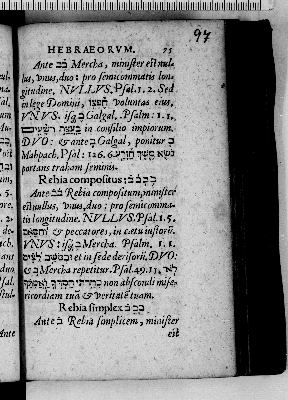 97
HEBRAEORVM. 75
Ante Mercha, minister est nul-
lus, vnus, duo: pro semicommatis lon-
gitudine. NVLLVS. Psal. 1. 2. Sed
in lege Domini, חֶפְצוֹ voluntas eius,
VNVS: isq; Galgal. Psalm: 1. 1.
בַּעֲצַת רְשָׁעִים in consilio impiorum.
DVO: & ante Galgal, ponitur
Mahpach, Psal: 126. 6.
נֹשֵׂא מֶשֶׁךְ הַזָּרַע
portans traham seminis.
Rebia compositus;
Ante Rebia compositum, minister
est nullus, vnus, duo: pro semicomma-
tis longitudine. NVLLVS. Psal. 1. 5.
וְחַטָּאִים & peccatores, in cœtu iustorũ.
VNVS: isq; Mercha. Psalm. 1. 1.
וּבְמוֹשַׁב לֵצִים et in sede derisorũ, DVO:
& Mercha repetitur. Psal. 11,
לֹא
כִחַדְתִּי חַסְדְּךָ וַאֲמִתְּךָ non abscondi mise-
ricordiam tuã & veritatẽ tuam.
Rebia simplex
Ante Rebia simplicem, minister
est